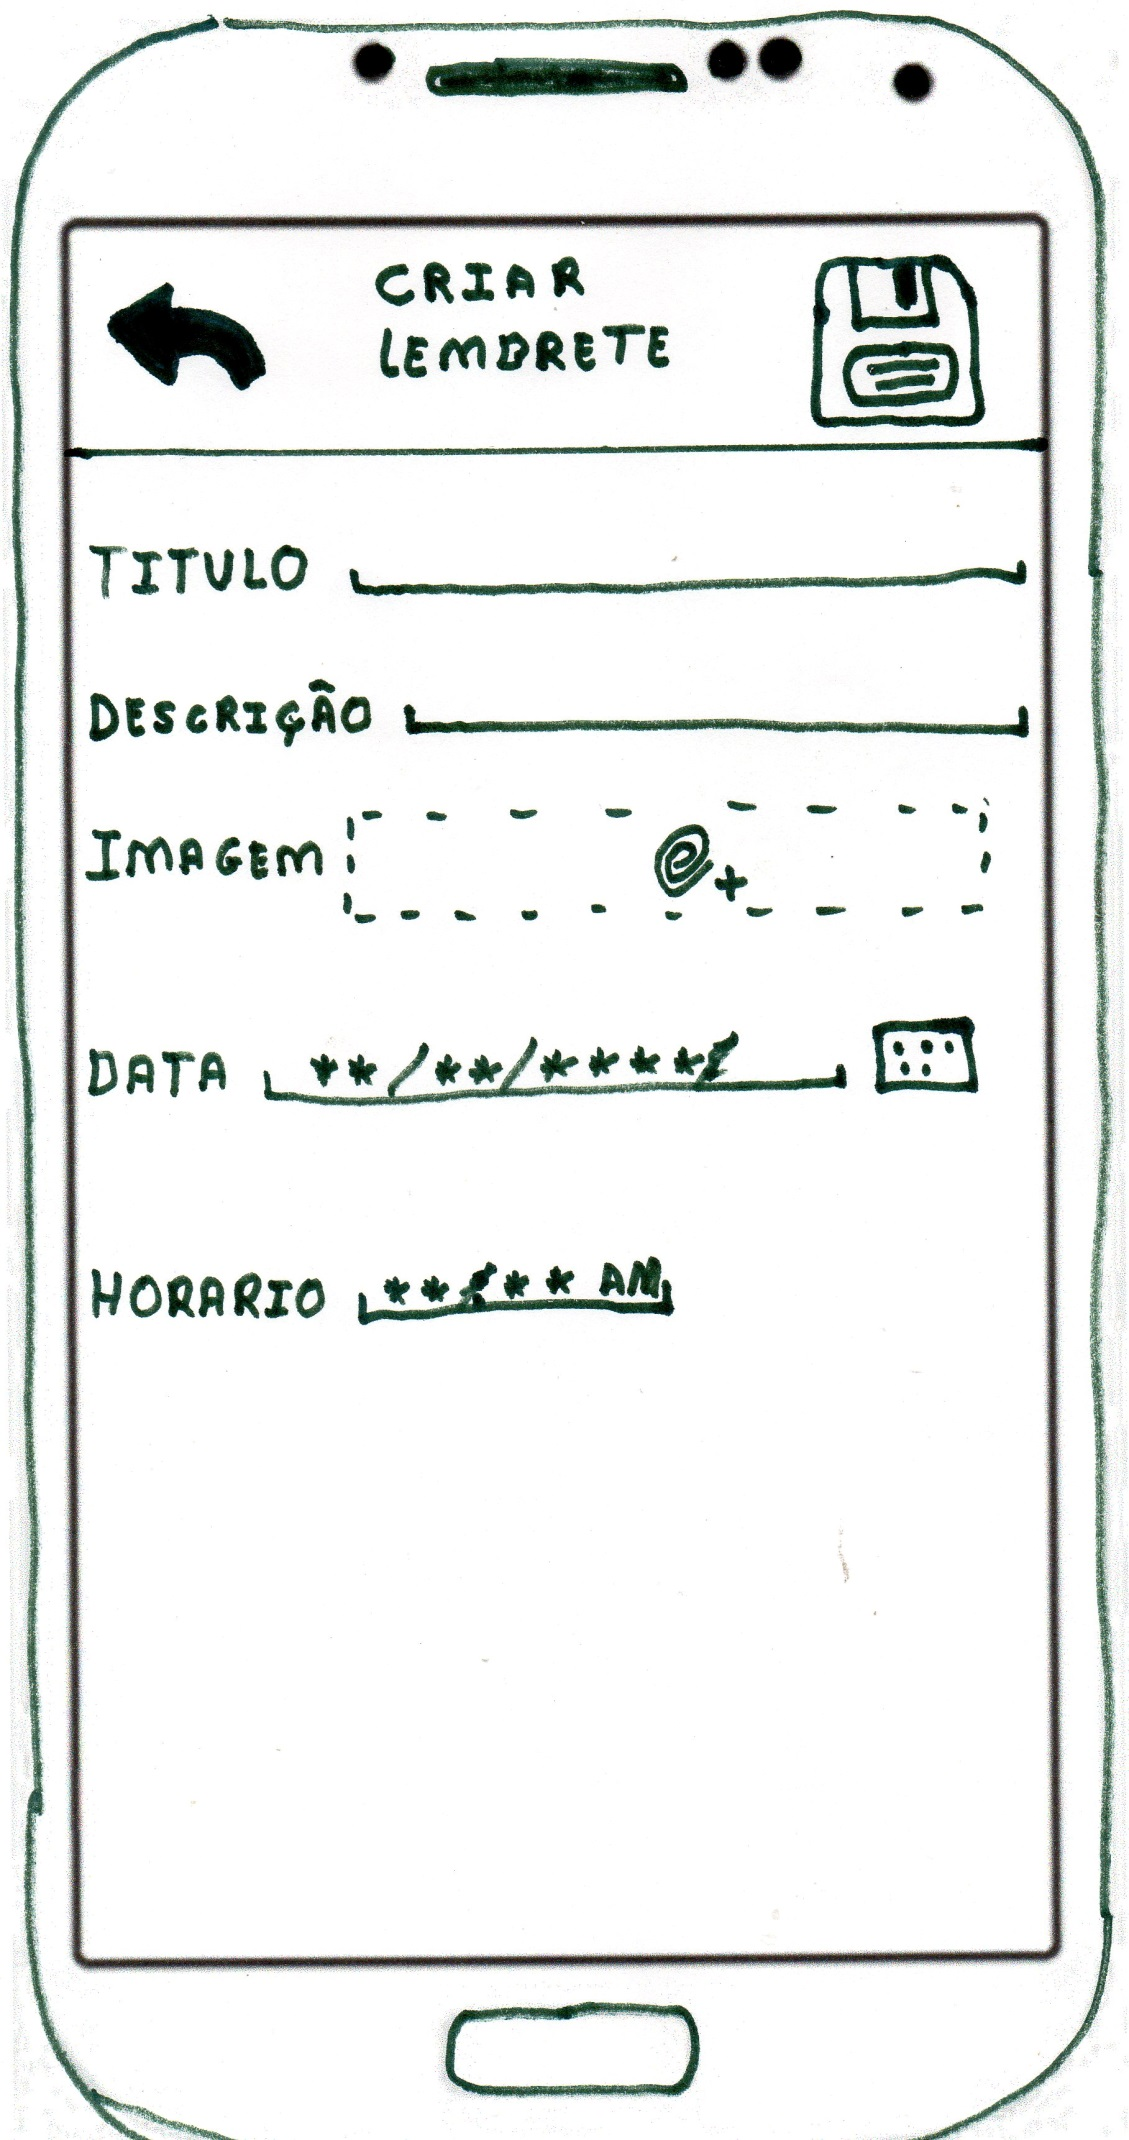 CRIAR
LEMBRETE
TITULO
DESCRIÇÃO
IMAGEM +
DATA **/**/****/
HORARIO **:** AM